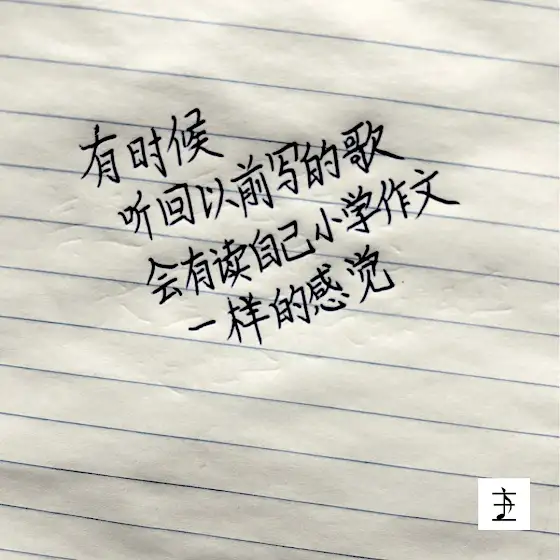 有时候
听回以前写的歌
会有读自己小学作文
一样的感觉